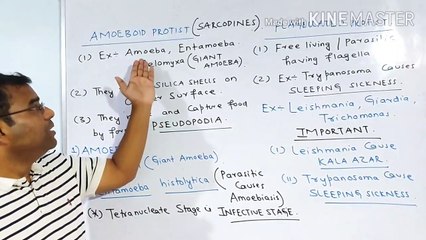 AMOEBOID PROTIST (SARCODINES)
(1) Ex÷ Amoeba, Entamoeba.
lomyxa (GIANT AMOEBA).
(2) They SILICA SHELLS on
er Surface.
(3) They and Capture food
by for PSEUDOPODIA.
1) AMO (Giant Amoeba)
amoeba histolytica (Parasitic Causes Amoebiasis)
(X) Tetranucleate Stage is INFECTIVE STAGE.
PROTIST
(1) Free living / Parasitic
having flagella
(2) Ex÷ Trypanosoma Causes
SLEEPING SICKNESS.
Ex÷ Leishmania, Giardia,
Trichomonas.
IMPORTANT.
(i) Leishmania Cause
KALA AZAR.
(ii) Trypanosoma Cause
SLEEPING SICKNESS.
Made with
KINEMASTER